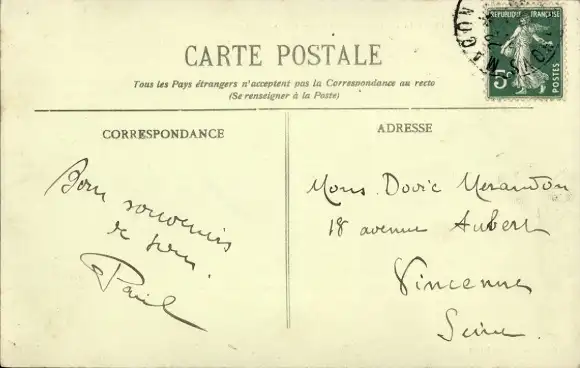 CARTE POSTALE
Tous les Pays étrangers n'acceptent pas la Correspondance au recto
(Se renseigner à la Poste)
REPUBLIQUE FRANÇAISE
5c
POSTES
CORRESPONDANCE
Bons souvenirs
de
Paul
ADRESSE
Mons.
18 avenue Aubert
Vincennes
Seine